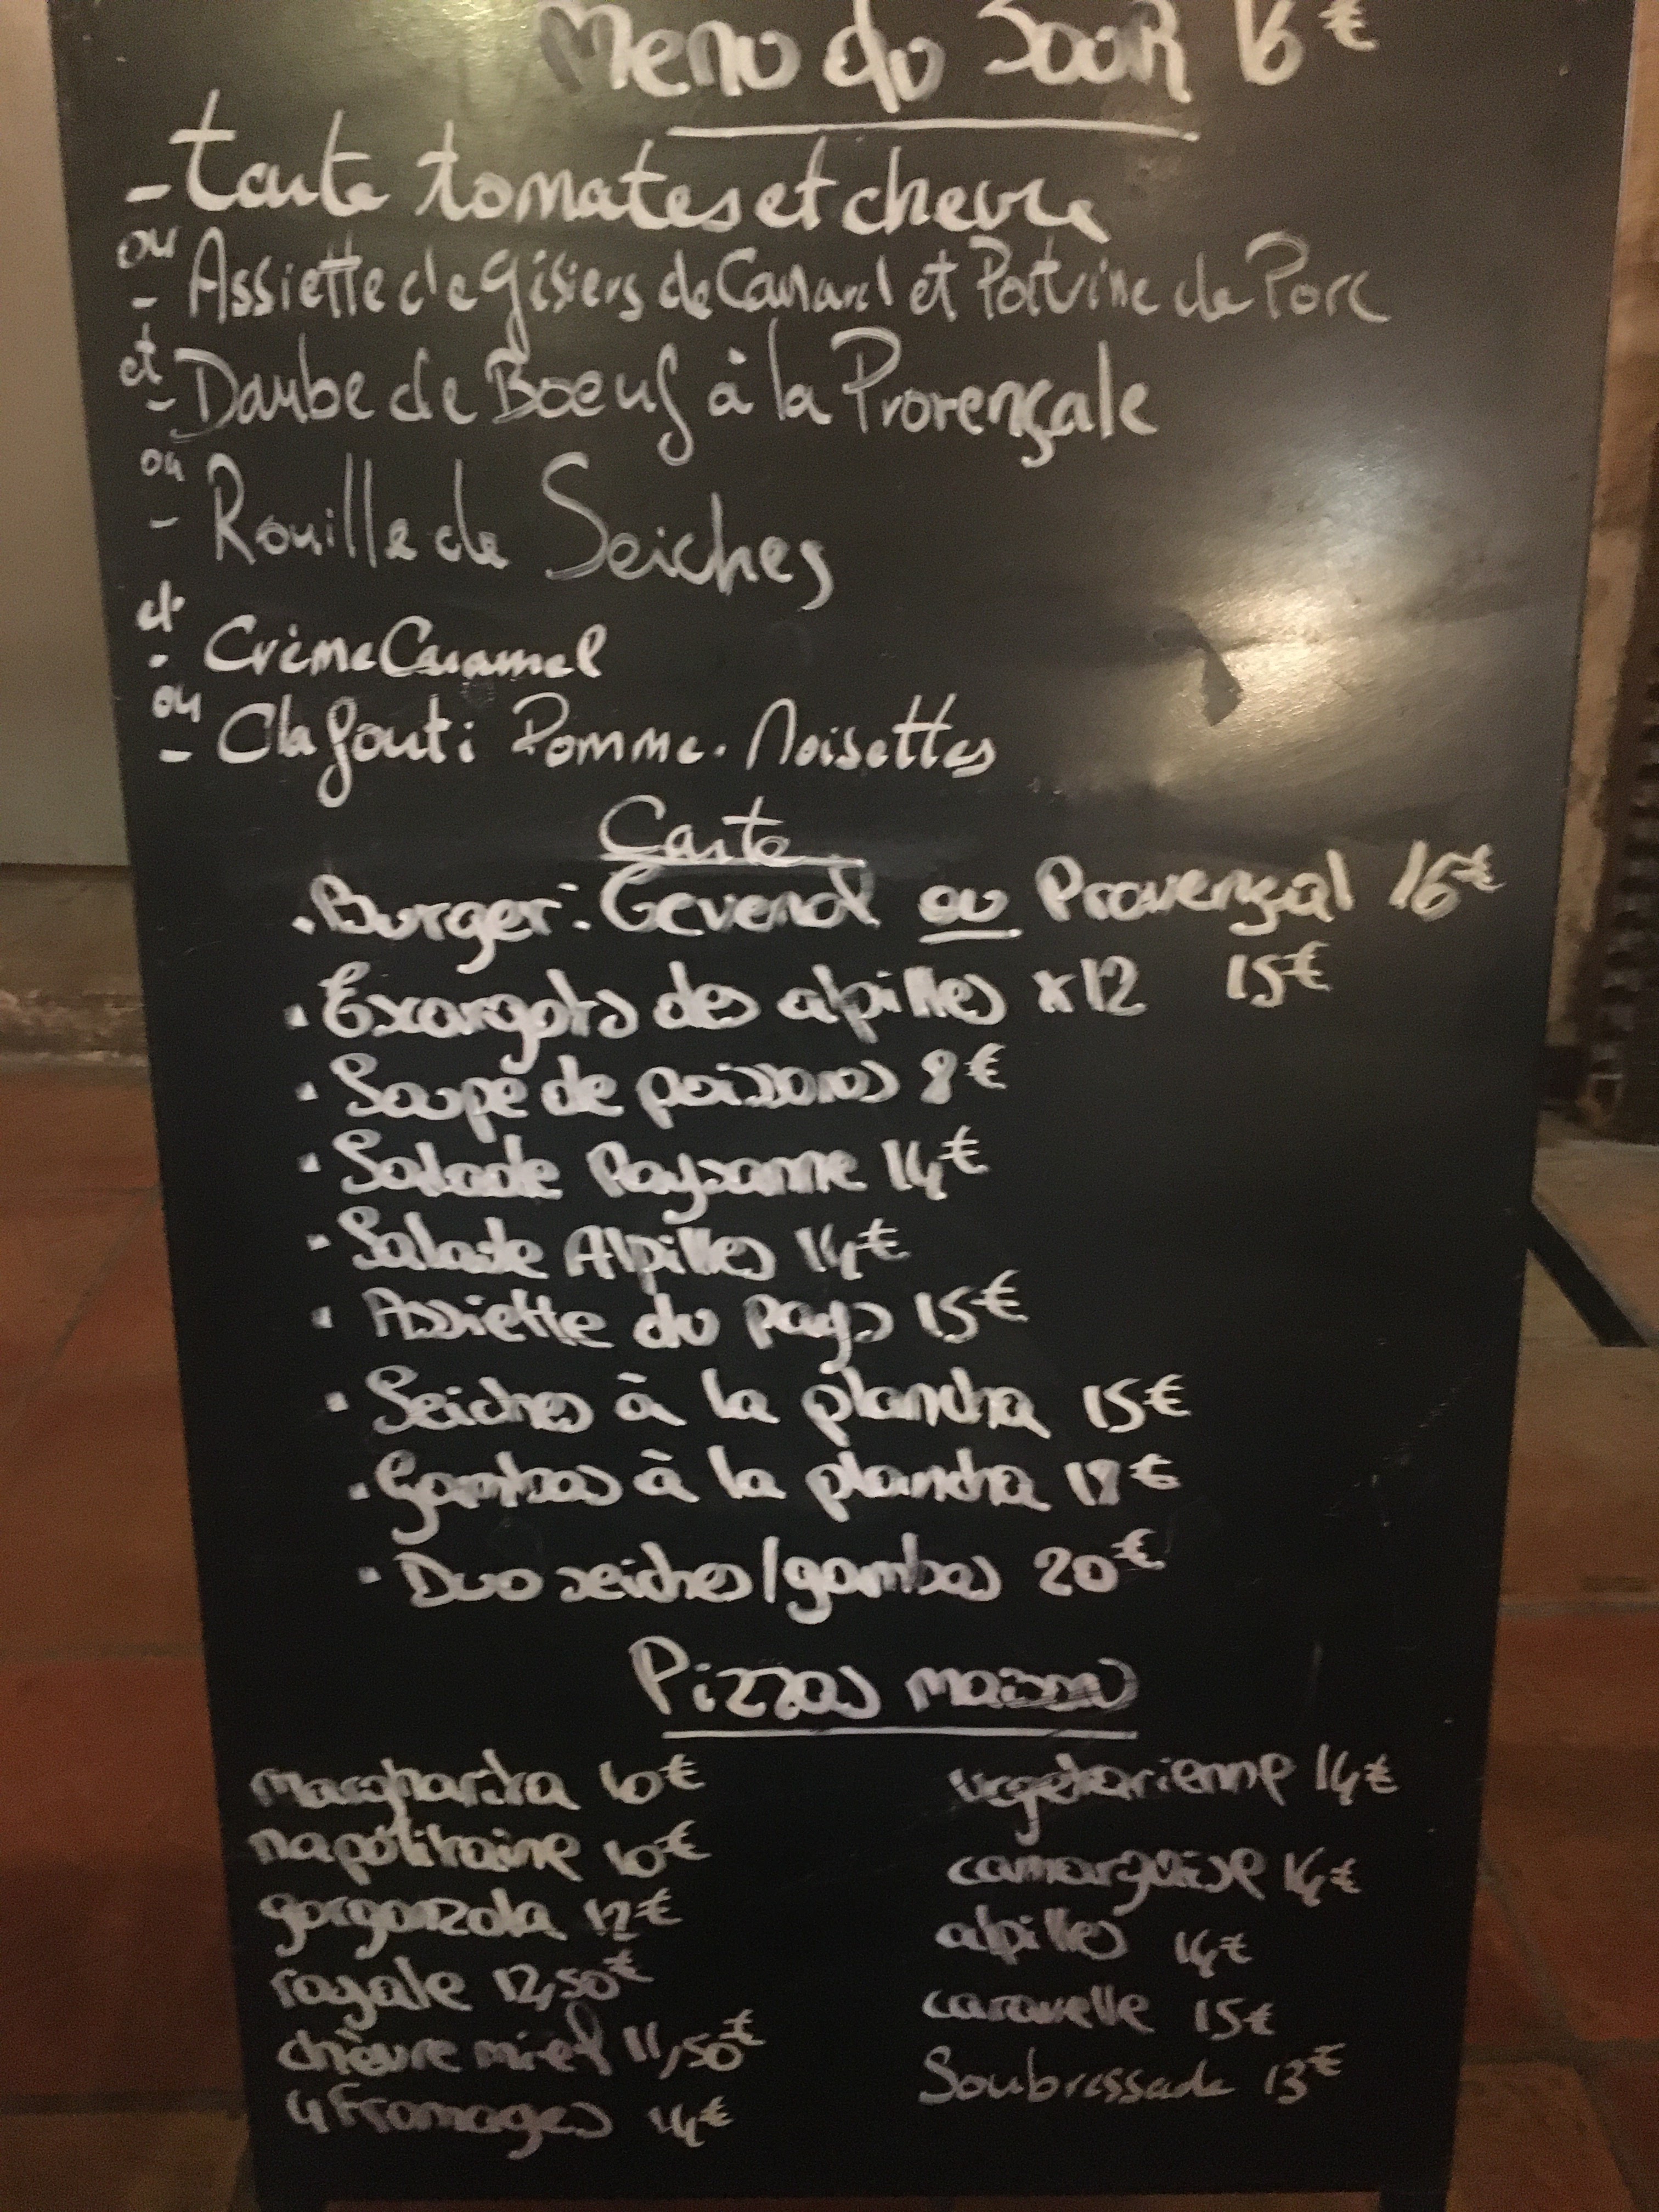 Menu du Jour 16€
- tarte tomates et chevre
ou
- Assiette de gisiers de Canard et Poitrine de Porc
et
- Daube de Boeuf à la Provençale
ou
- Rouille de Seiches
et
- Crème Caramel
ou
- Clafouti Pomme. Noisettes
Carte
. Burger: ou Provençal 16€
. Excargots des alpilles x12 15€
. Soupe de poissons 8€
. Salade Paysanne 14€
. Salade Alpilles 14€
. Assiette du pays 15€
. Seiches à la plancha 15€
. Gambas à la plancha 18€
. Duo seiches/gambas 20€
Pizzas maison
Margharita 10€
napolitaine 10€
gorgonzola 12€
royale 12,50€
chèvre miel 11,50€
4 Fromages 14€
vegetarienne 14€
camarguaise 14€
alpilles 14€
caravelle 15€
Soubressade 13€